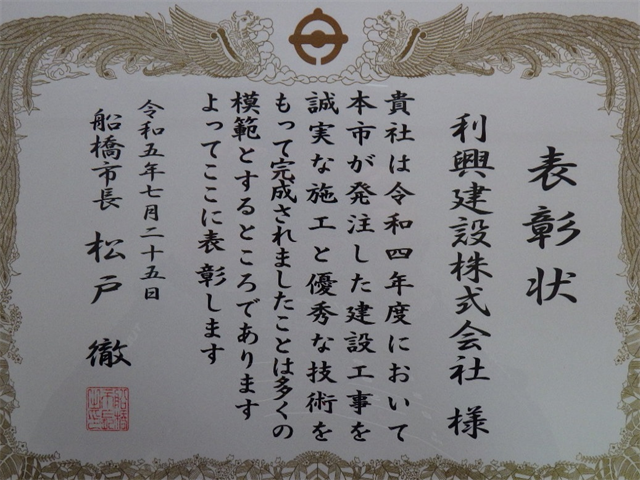 表彰状
利興建設株式会社 様
貴社は令和四年度において
本市が発注した建設工事を
誠実な施工と優秀な技術を
もって完成されましたことは多くの
模範とするところであります
よってここに表彰します
令和五年七月二十五日
船橋市長 松戸 徹